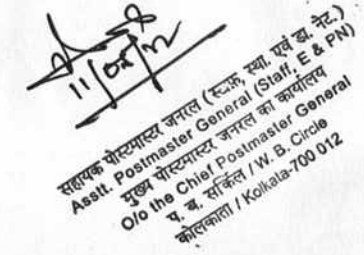 11/05/22
सहायक पोस्टमास्टर जनरल (स्टाफ़, स्था. एवं डा. नेट.)
Asstt. Postmaster General (Staff, E & PN)
मुख्य पोस्टमास्टर जनरल का कार्यालय
O/o the Chief Postmaster General
प. ब. सर्किल / W. B. Circle
कोलकाता / Kolkata-700 012